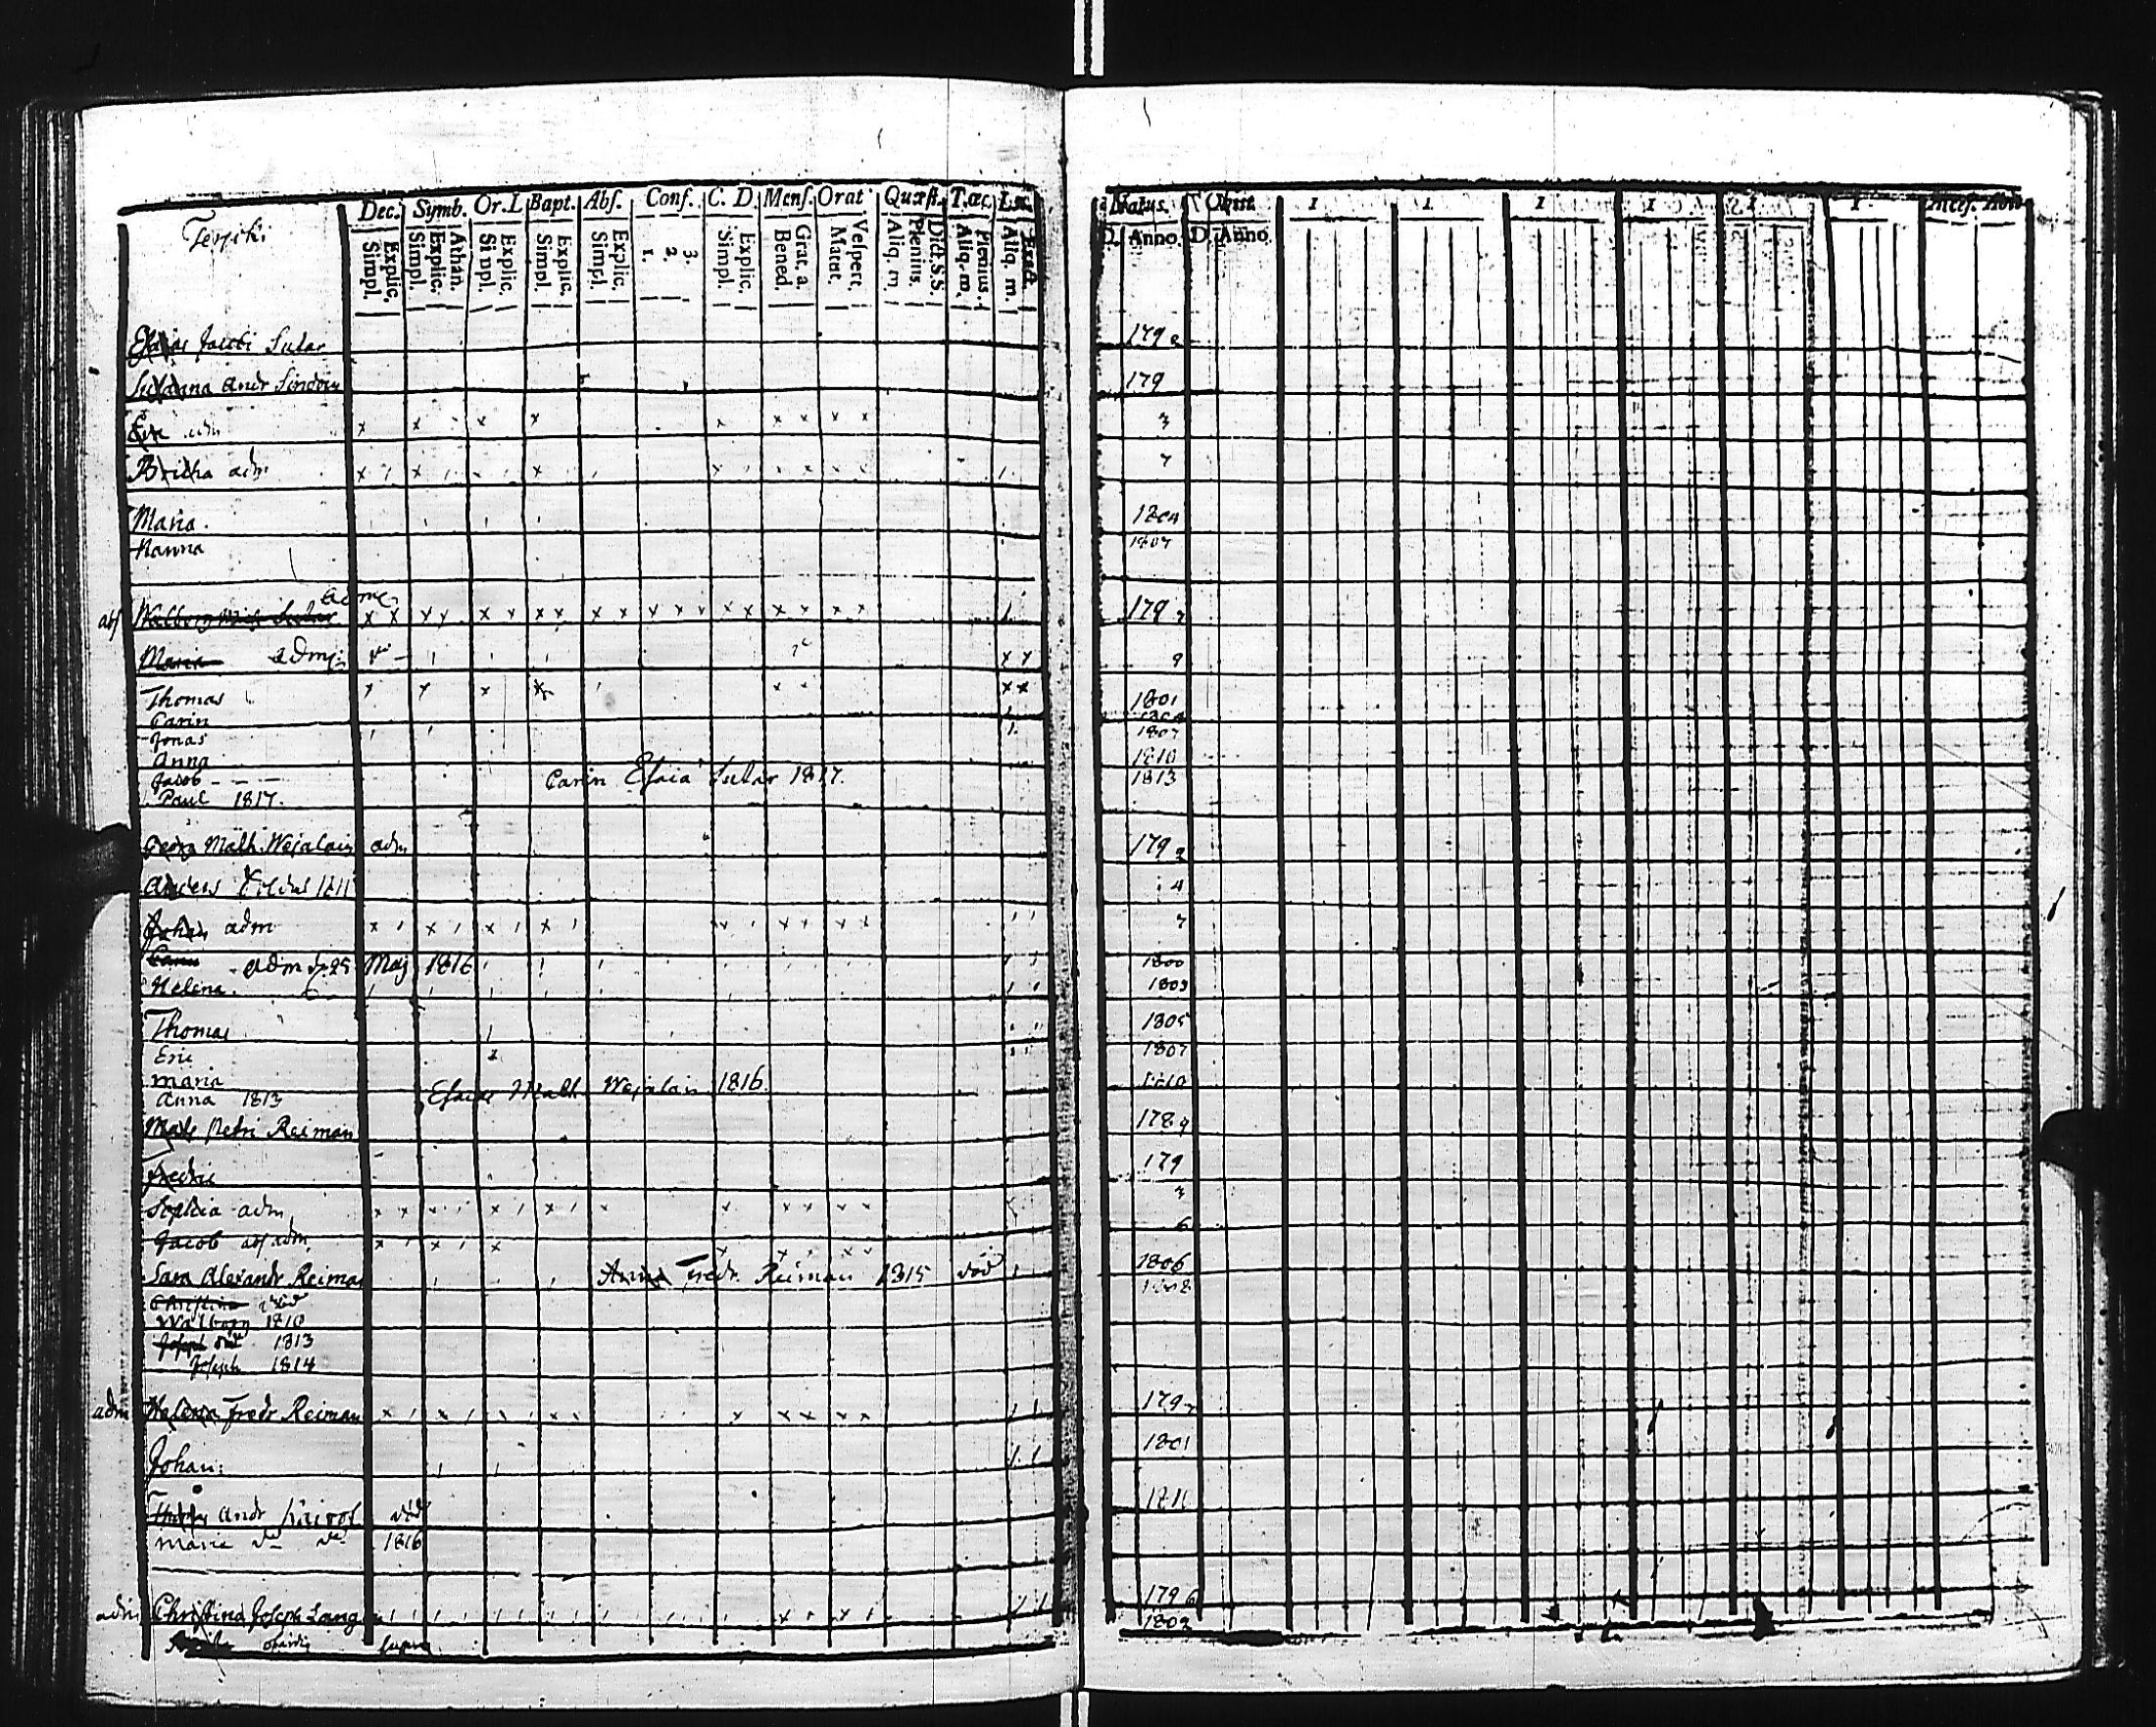 Dec. Symb. Or. L Bapt. Abs. Conf. C. D. Mens. Orat Quæst. T.œc.
Simpl. Explic. Simpl. Explic. Athan. Simpl. Explic. Simpl. Explic. Simpl. Explic. 1. 2. 3. Simpl. Explic. Bened. Grat. a. Matut. Vespert. Aliq. m. Plenius. Dict. S.S. Aliq. m. Plenius. Aliq. m. Exact.
Natus. Obiit.
D. Anno. D. Anno.
Esaias Jacobi Sutar 179
Susanna Andr 179
Eva adm 3
Britha adm 7
Maria. 1804
Nanna 1807
adm
abs Walborg Sutar 179
Maria adm 9
Thomas 1801
Carin
Jonas 1807
Anna 1810
Jacob - - - Carin Esaiæ Sutar 1817. 1813
Paul 1817.
Math. Wejalain adm 179
Anders 1811 4
Johan adm 7
adm d. 25 Maj 1816 1800
Helena. 1803
Thomas 1805
Eric 1807
Maria 1810
Anna 1813 Esaias Math Wejalain 1816.
Mats Petri Reiman 178
Fredric 179
Sophia adm 3
Jacob abs adm. 6
Sara Alexandr Reiman Anna Fredr. Reiman 1815 död 1806
Christina död 1808
Walborg 1810
Joseph död 1813
Joseph 1814
adm Helena Fredr Reiman 179
Johan: 1801
Thomas Andr död 1811
Maria 1816
adm Christina Joseph Lang 1796
supra 1803